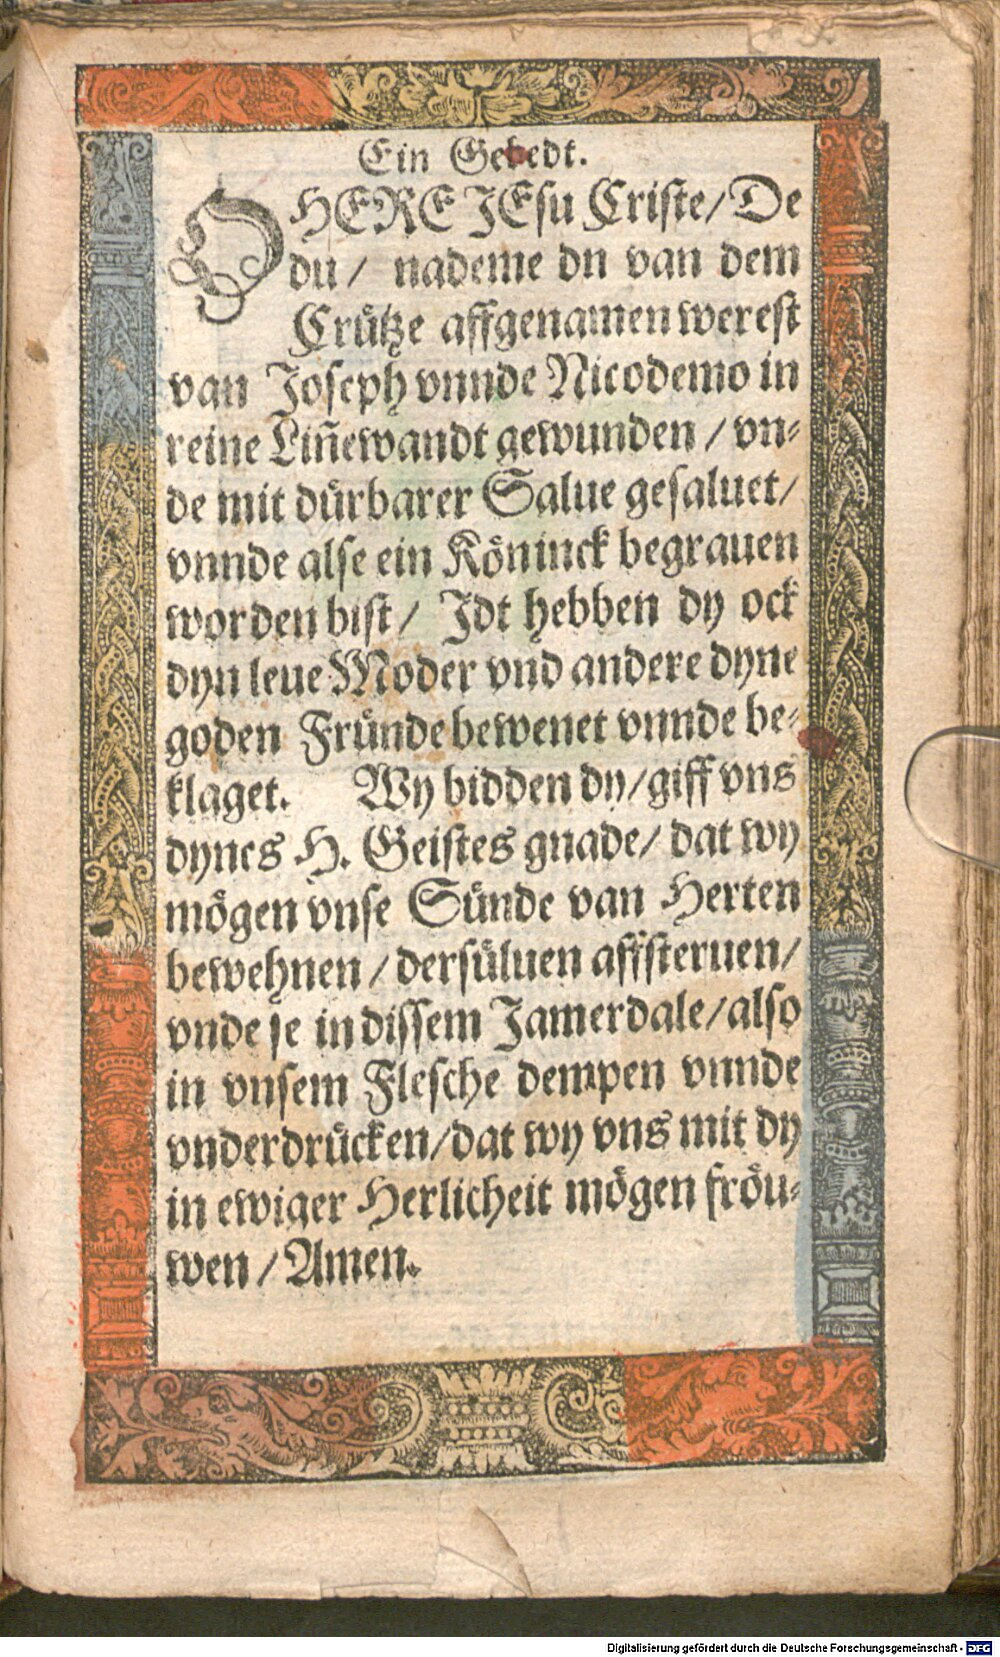 Ein Gebedt.
O HERE JEsu Criste/ De
du/ nademe dn van dem
Crütze affgenamen werest
van Joseph vnnde Nicodemo in
reine Liñewandt gewunden / vn⸗
de mit dürbarer Salue gesaluet/
vnnde alse ein Köninck begrauen
worden bist/ Idt hebben dy ock
dyn leue Moder vnd andere dyne
goden Fründe bewenet vnnde be⸗
klaget. Wy bidden dy/giff vns
dynes H. Geistes gnade/ dat wy
mögen vnse Sünde van Herten
bewehnen / dersüluen affsteruen/
vnde se in dissem Jamerdale/also
in vnsem Flesche dempen vnnde
vnderdrücken/dat wy vns mit dy
in ewiger Herlicheit mögen fröu⸗
wen / Amen.
Digitalisierung gefördert durch die Deutsche Forschungsgemeinschaft - DFG